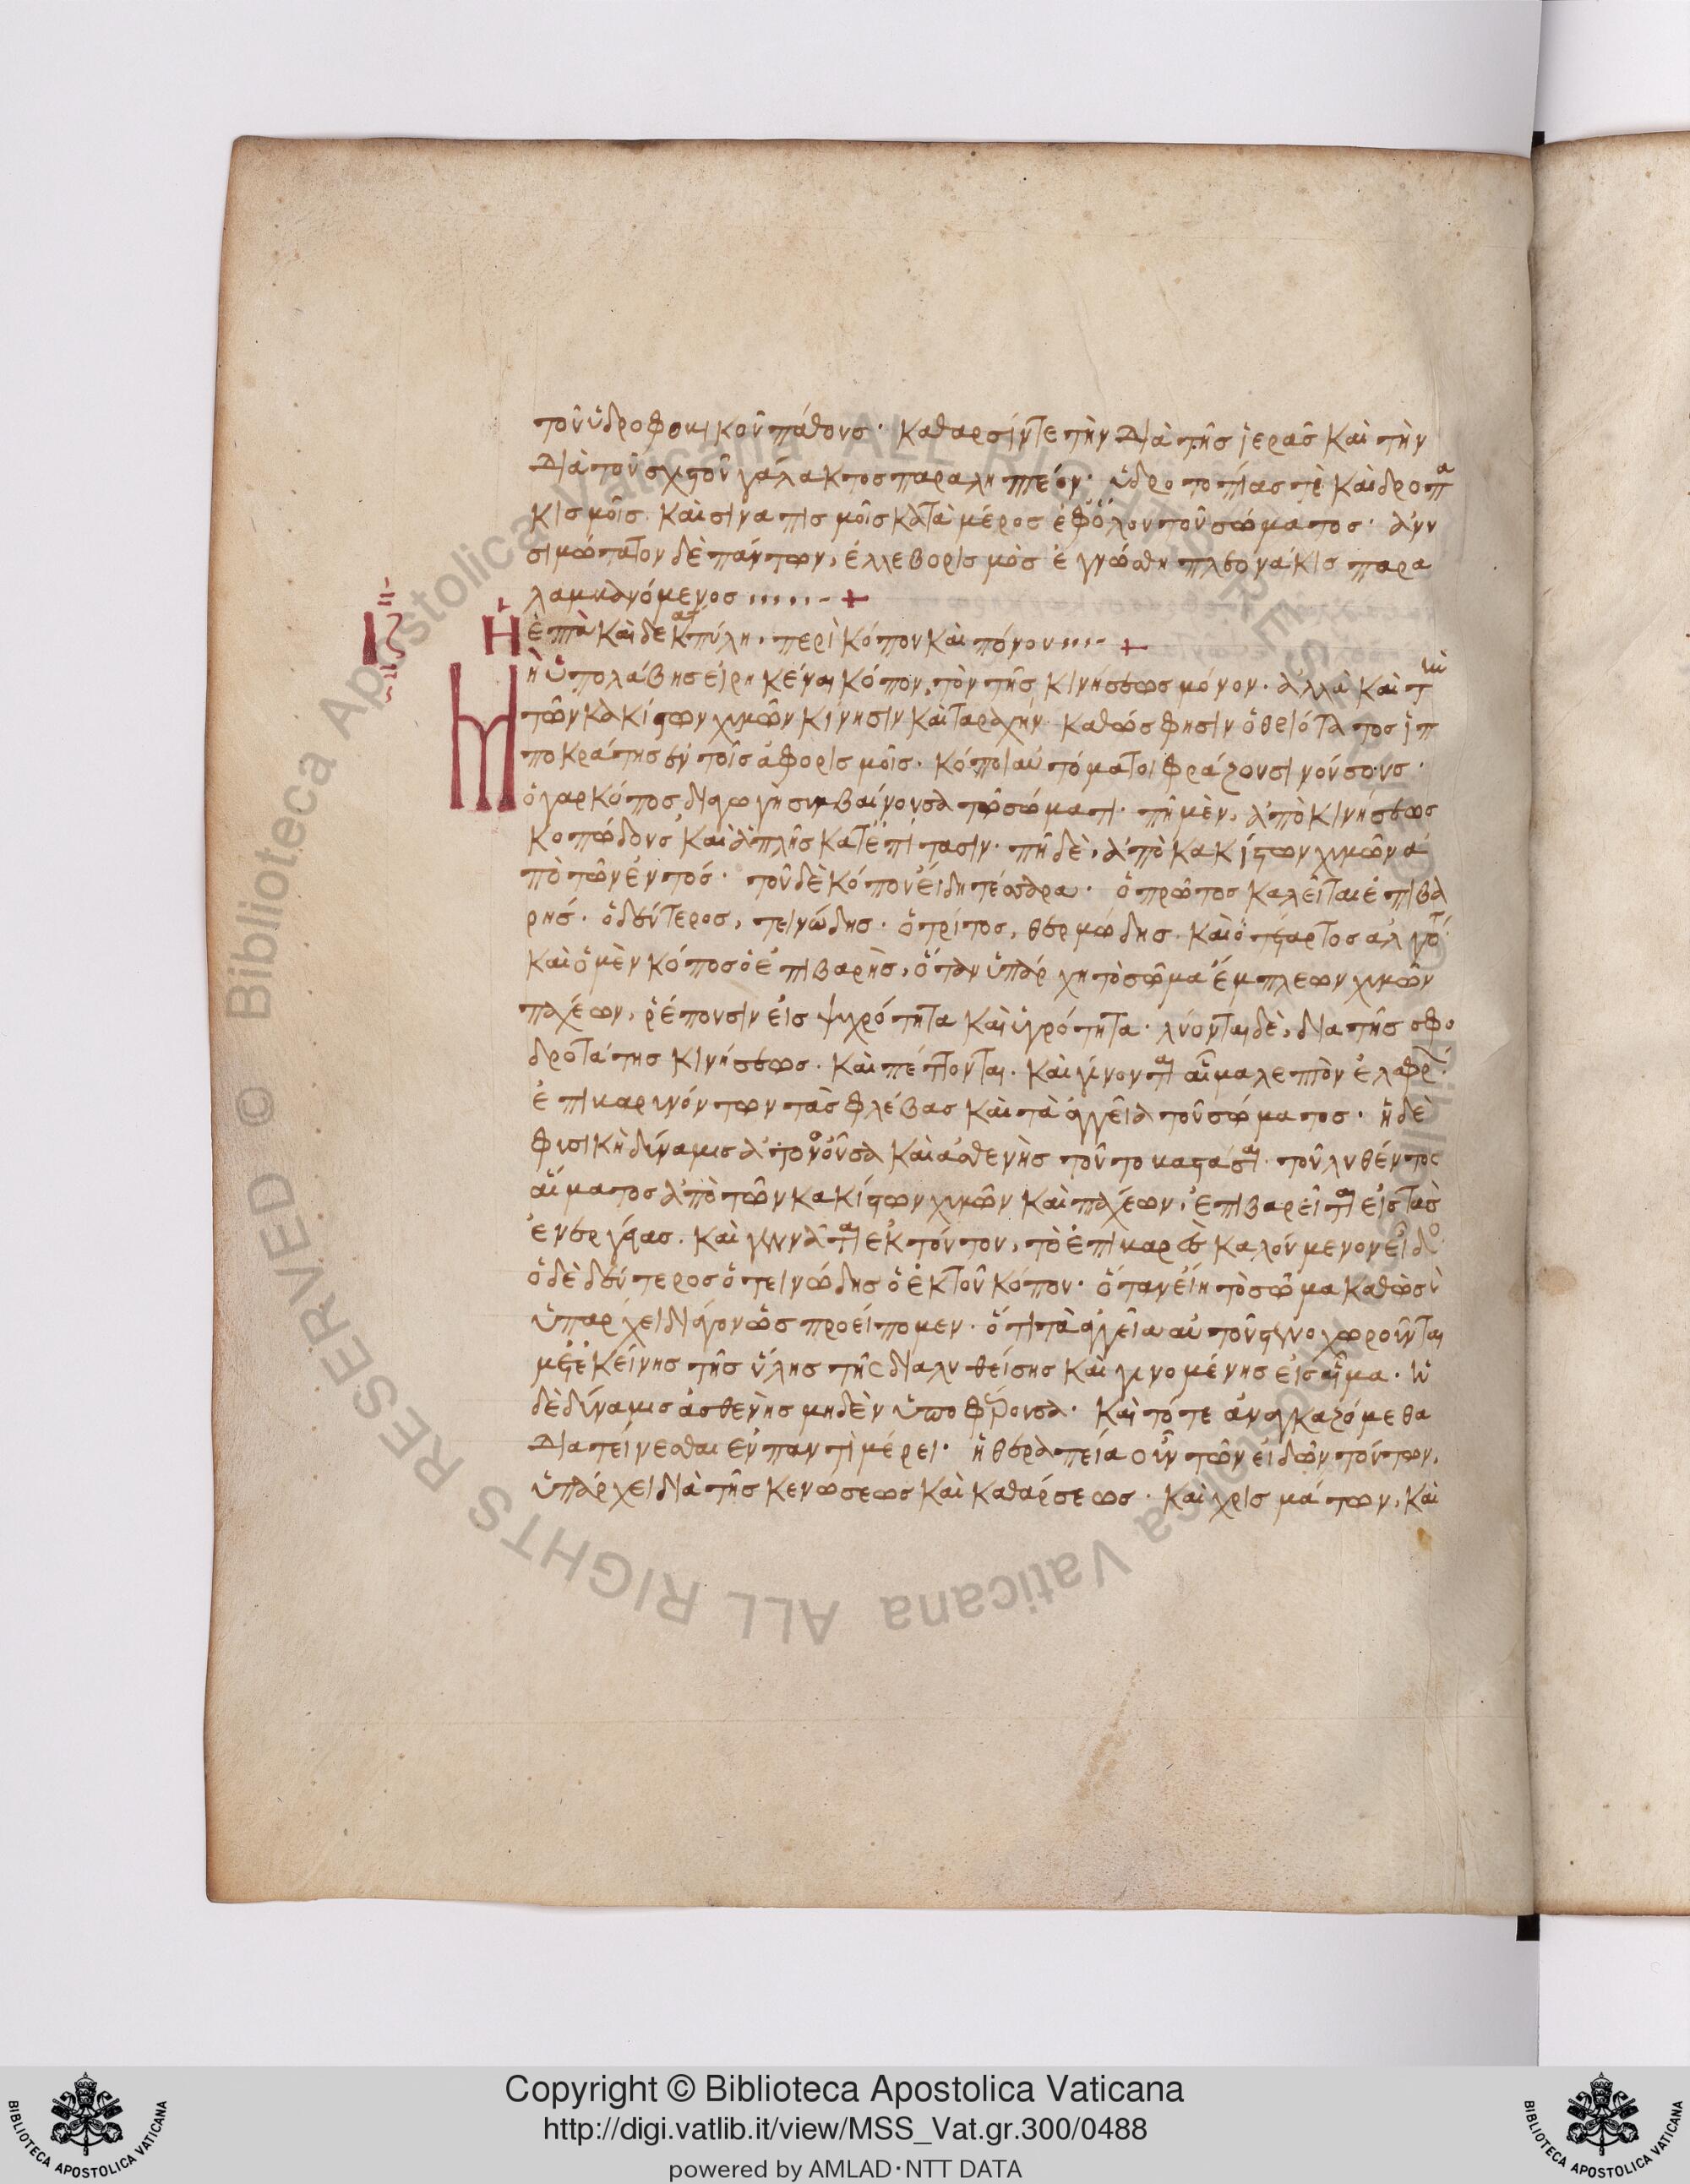 τοῦ ὑδροφοβικοῦ πάθους· καθαρσίν τε τὴν διὰ τῆς ἱερᾶς καὶ τὴν
διὰ τοῦ σχιστοῦ γάλακτος παραληπτέον· ὑδροποτίας τὲ καὶ δροπα
κισμοῖς καὶ σιναπισμοῖς κατὰ μέρος ἐφ' ὅλου τοῦ σώματος·
σιμώτατον δὲ πάντων, ἐλλεβορισμὸς ἐγνώσθη πλεονάκις παρα
λαμβανόμενος +
ΙΖ Ἡ ἑπτὰ καὶ δεκάτη πύλη, περὶ κόπου καὶ πόνου +
Μὴ ὑπολάβης εἰρηκέναι κόπον, τὸν τῆς κινήσεως μόνον· ἀλλὰ καὶ τὴν
τῶν κακίστων χυμῶν κίνησιν καὶ ταραχήν· καθώς φησιν ὁ θειότατος ἱπ
ποκράτης ἐν τοῖς ἀφορισμοῖς· κόποι αὐτόματοι φράζουσι νούσους·
ὁ γὰρ κόπος διαγωγὴ συμβαίνουσα τῶ σώματι· πῆ μὲν, ἀπὸ κινήσεως
κοπώδους καὶ ἀπλῆς κατ' ἐπίτασιν· πῆ δὲ, ἀπὸ κακίστων χυμῶν ἀ
πὸ τῶν ἐντός· τοῦ δὲ κόπου εἴδη τέσσαρα· ὁ πρῶτος καλεῖται ἐπιβα
ρής· ὁ δεύτερος, τεινώδης· ὁ τρίτος, θερμώδης· καὶ ὁ τέταρτος
καὶ ὁ μὲν κόπος ὁ ἐπιβαρὴς, ὅταν ὑπάρχη τὸ σῶμα ἔμπλεων χυμῶν
παχέων, ῥέπουσιν εἰς ψυχρότητα καὶ ὑγρότητα· λύονται δὲ, δια τῆς σφο
δροτάτης κινήσεως· καὶ πέπτονται· καὶ γίνονται αἷμα λεπτὸν ἐλαφρ
ἐπιβαρυνόντων τὰς φλέβας καὶ τὰ ἀγγεῖα τοῦ σώματος· ἡ δὲ
φυσικὴ δύναμις ἀτονοῦσα καὶ ἀσθενὴς τοῦτο βαστάσαι· τοῦ λυθέντος
αἵματος ἀπὸ τῶν κακίστων χυμῶν καὶ παχέων, ἐπιβαρεῖται εἰς τὰς
ἐνεργείας· καὶ γεννᾶται ἐκ τούτου, τὸ ἐπιβαρὲς καλούμενον εἶδος
ὁ δὲ δεύτερος ὁ τεινώδης ὁ ἐκ τοῦ κόπου· ὅταν εἴη τὸ σῶμα καθὼς
ὑπάρχει ὡς προείπομεν· ὅτι τὰ ἀγγεῖα αὐτοῦ στενοχωροῦνται
μετ' ἐκείνης τῆς ὕλης τῆς διαλυθείσης καὶ γινομένης εἰς αἷμα· ἡ
δὲ δύναμις ἀσθενὴς μηδὲν ὑποφέρουσα· καὶ τότε ἀναγκαζόμεθα
διατείνεσθαι ἐν παντὶ μέρει· ἡ θεραπεία οὖν τῶν εἰδῶν τούτων,
ὑπάρχει διὰ τῆς κενώσεως καὶ καθάρσεως· καὶ χρισμάτων, καὶ
Copyright © Biblioteca Apostolica Vaticana
http://digi.vatlib.it/view/MSS_Vat.gr.300/0488
powered by AMLAD·NTT DATA
BIBLIOTECA APOSTOLICA VATICANA
BIBLIOTECA APOSTOLICA VATICANA